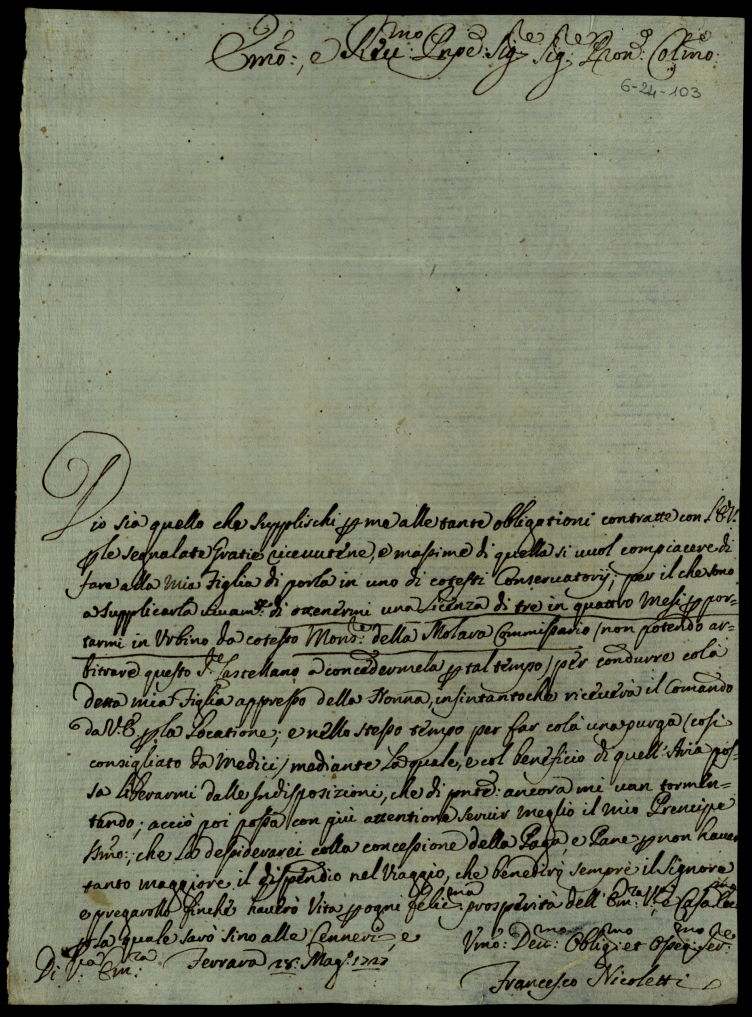 Emo:, e Revmo Pnpe: Sigre Sigre Pron: Colmo:
6-24-103
Dio sia quello che supplischi p me alle tante obligationi contratte con L'E.V.
p le segnalate Gratie ricevutene, e massime di quella si vuol compiacere di
fare alla mia Figlia di porla in uno di cotesti Conservatorij; per il che sono
a supplicarla vivamte: di ottenermi una Licenza di tre in quattro Mesi p por=
tarmi in Urbino da cotesto Monsre: della Molara Commissario (non potendo ar=
bitrare questo Castellano a concedermela p tal tempo) per condurre colà
detta mia Figlia appresso della Nonna, insintantoche riceverà il Comando
da V.E. p la Locatione; e nello stesso tempo per far colà una purga (cosi
consigliato da Medici) mediante La quale, e col beneficio di quell'Aria pos=
sa liberarmi dalle Indisposizioni, che di pnte: ancora mi van tormen=
tando; acciò poi possa con più attentione servir meglio il mio Prencipe
SSmo:, che La desiderarei colla concessione della Paga, e Pane p non haver
tanto maggiore il dispendio nel Viaggio, che benedirò sempre il Signore
e pregarollo finchè haverò Vita p ogni felicma: prosperità dell'Emza Va, e Casa
p la quale sarò sino alle Ceneri e
Di Va: Emza: Ferrara 28: Mago: 1727
Vmo: Devmo: Obligmo: et Osseqmo: Serre
Francesco Nicoletti